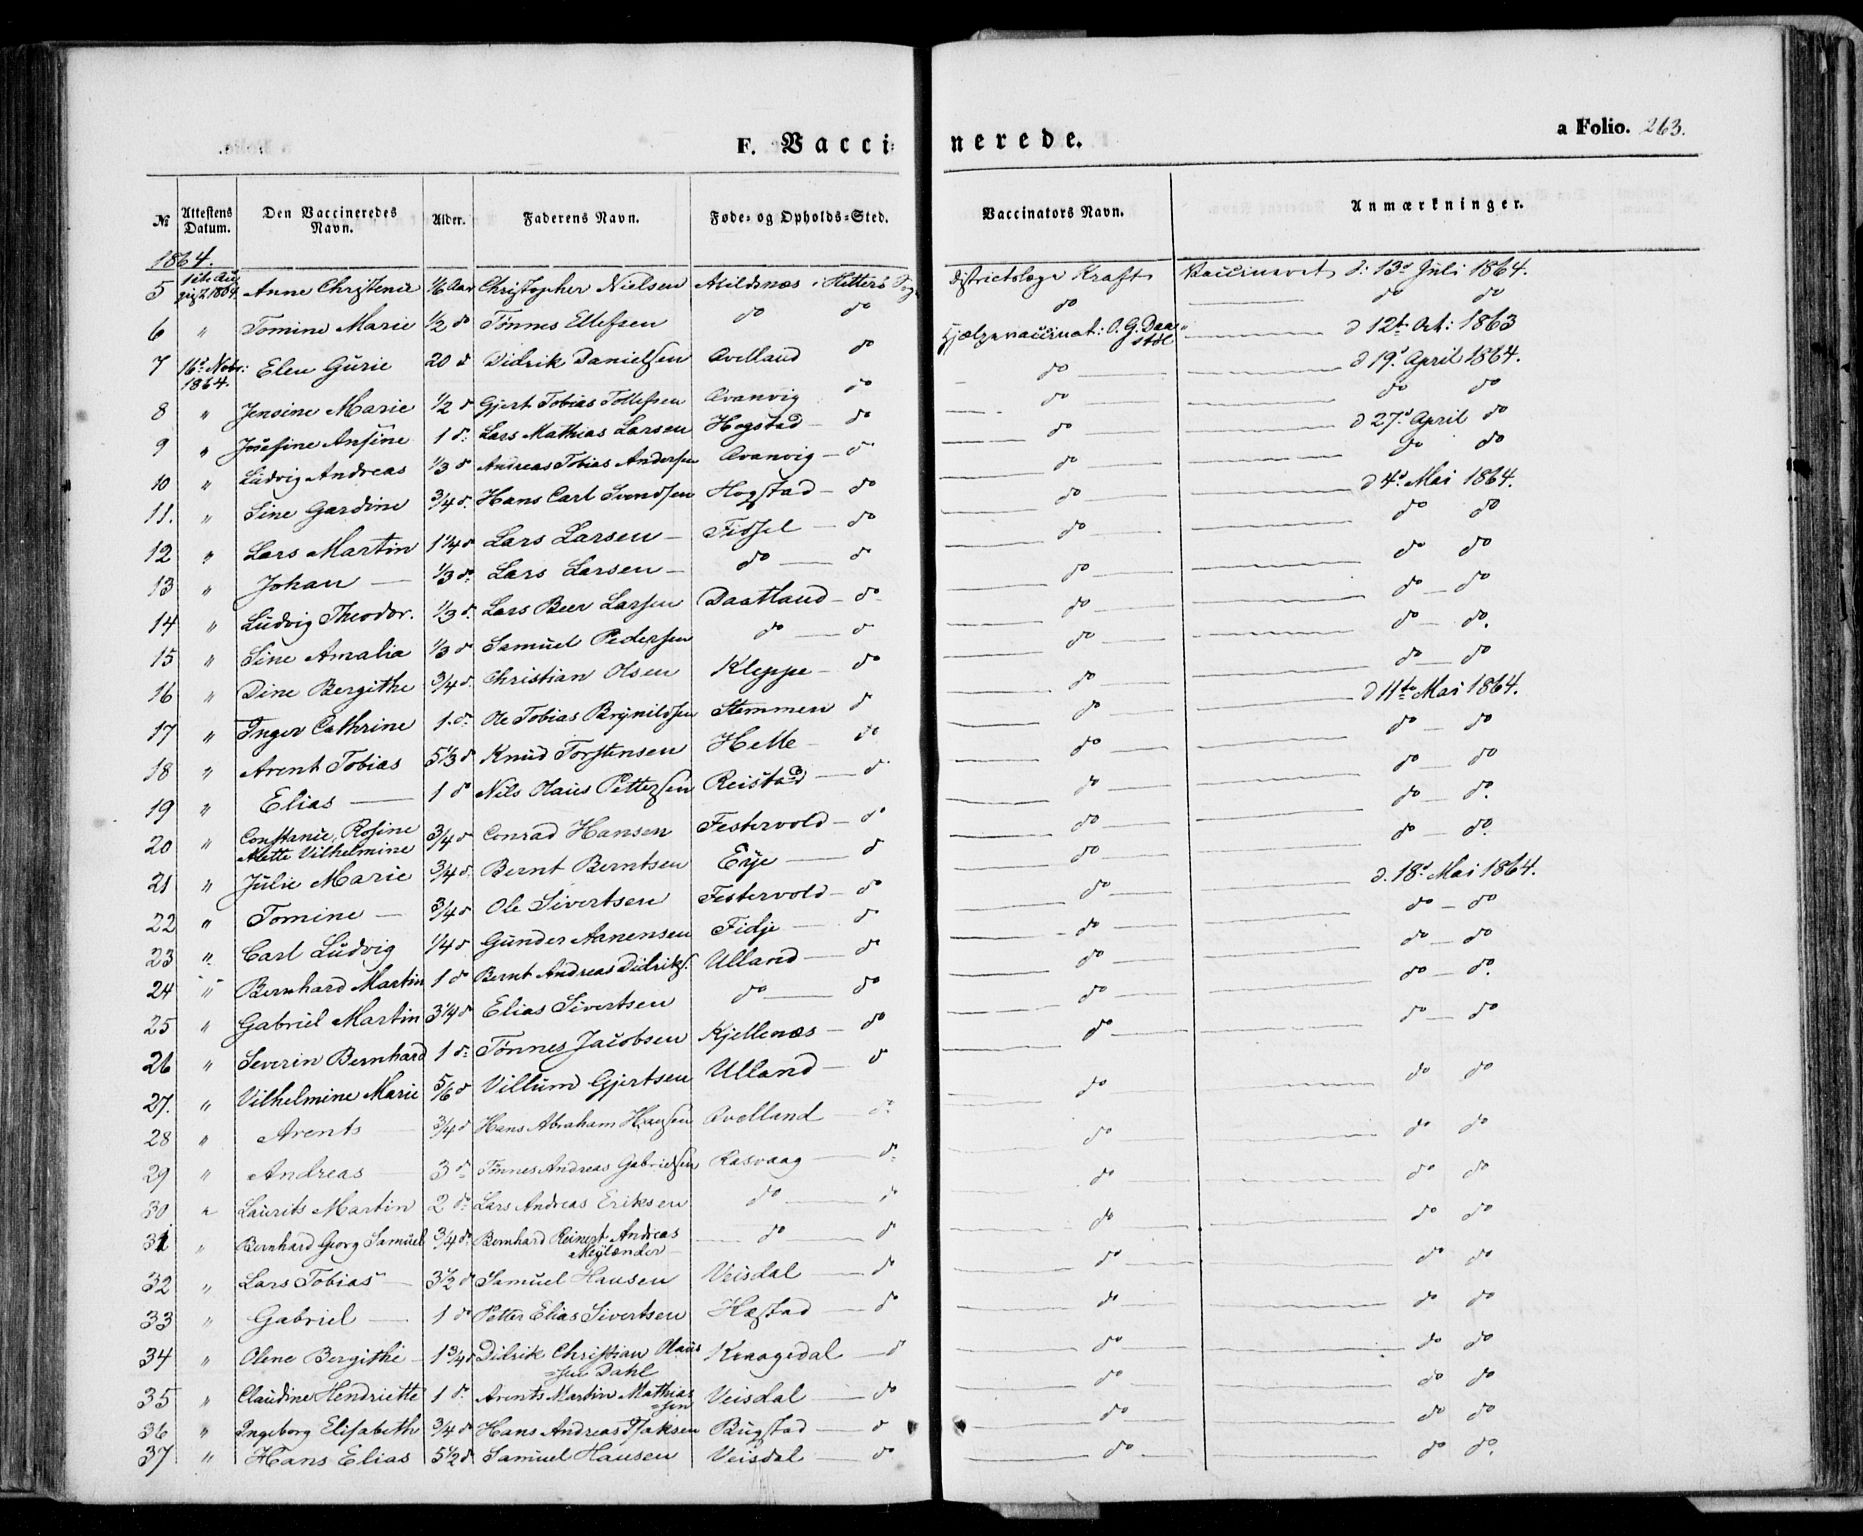 F. Vaccinerede.
a Folio. 263.
№ | Attestens Datum. | Den Vaccineredes Navn. | Alder. | Faderens Navn. | Føde- og Opholds-Sted. | Vaccinators Navn. | Anmærkninger.
1864.
5 | 1ste August 1864. | Anne Christenie | 1/6 Aar | Christopher Nielsen | Abildsnæs i Hitterø | Districtslæge Kraft | Vaccineret d: 13de Juli 1864.
6 | " | Tomine Marie | 1/2 do | Tønnes Ellefsen | do do | do | do do
7 | 16de Novbr: 1864. | Elen Gurie | 20 d | Didrik Danielsen | Qvelland do | Hjælpevaccinat: O. G. Daastøl | d 12te Oct: 1863
8 | " | Jensine Marie | 1/2 d | Gjert Tobias Tollefsen | Qvanvig do | do | d 19de April 1864.
9 | " | Josefine Ansine | 1 d: | Lars Mathias Larsen | Hogstad do | do | do do
10 | " | Ludvig Andreas | 1/3 d | Andreas Tobias Andersen | Qvanvig do | do | d 27de April do
11. | " | Sine Gardine | 3/4 d. | Hans Carl Svendsen | Hogstad do | do | do do
12 | " | Lars Martin | 1 1/4 d | Lars Larsen | Fidsel do | do | d 4de Mai 1864.
13 | " | Johan | 1/3 d: | Lars Larsen | do do | do | do do
14 | " | Ludvig Theodor. | 1/3 d. | Lars Beer Larsen | Daatland do | do | do do
15 | " | Sine Amalia | 1/3 d | Samuel Pedersen | do d | do | do do
16 | " | Dine Bergithe | 3/4 d. | Christian Olsen | Kleppe do | do | do do.
17 | " | Inger Cathrine | 1. d: | Ole Tobias Brynildsen | Stemmen d | do | do do
18 | " | Arent Tobias | 5 1/3 d | Knud Torstensen | Helle do | do | d 11te Mai 1864.
19 | " | Elias | 1 d | Nils Olaus Pettersen | Reistad d | do | do do
20 | " | Constanie, Rosine Mette Vilhelmine | 3/4 d | Conrad Hansen | Festervold d | do | do do
21 | " | Julie Marie | 3/4 d. | Bernt Berntsen | Eye d | do | do do.
22 | " | Tomine | 3/4 d | Ole Sivertsen | Festervold do | do | do do.
23 | " | Carl Ludvig | 1/4 d | Gunder Aanensen | Fidje d | do | d. 18de Mai 1864.
24 | " | Bernhard Martin | 1 d | Bernt Andreas Didriks. | Ulland do | do | do do
25 | " | Gabriel Martin | 3 1/4 d | Elias Sivertsen | do do | do | do do
26 | " | Severin Bernhard | 1 d: | Tønnes Jacobsen | Kjellenæs do | do | do do.
27. | " | Vilhelmine Marie | 5/6 d | Villum Gjertsen | Ulland d | do | do do
28 | " | Arents | 3/4 d | Hans Abraham Hansen | Qvelland d: | do | do do
29 | " | Andreas | 3 d: | Tønnes Andreas Gabrielsen | Rasvaag d: | do | do do
30 | " | Laurits Martin | 2 d: | Lars Andreas Eriksen | do d | do | do do
31 | " | Bernhard Georg Samuel | 3/4 d: | Bernhard Reinert Andreas Meylænder | do d | do | do do
32 | " | Lars Tobias | 3 1/2 d | Samuel Hansen | Veisdal d | do | do do
33 | " | Gabriel | 1 d | Petter Elias Sivertsen | Høstad d | do | do do
34 | " | Olene Bergithe | 1 3/4 d | Didrik Christian Olaussen Dahl | d | do | do do
35 | " | Claudine Hendriette | 1 d. | Arents Martin Mathiassen | Veisdal do | do | do do
36 | " | Ingeborg Elisabeth | 3/4 d | Hans Andreas Isaksen | Bugstad d | do | do do
37 | " | Hans Elias | 5 1/2 d | Samuel Hansen | Veisdal do | do | do do.